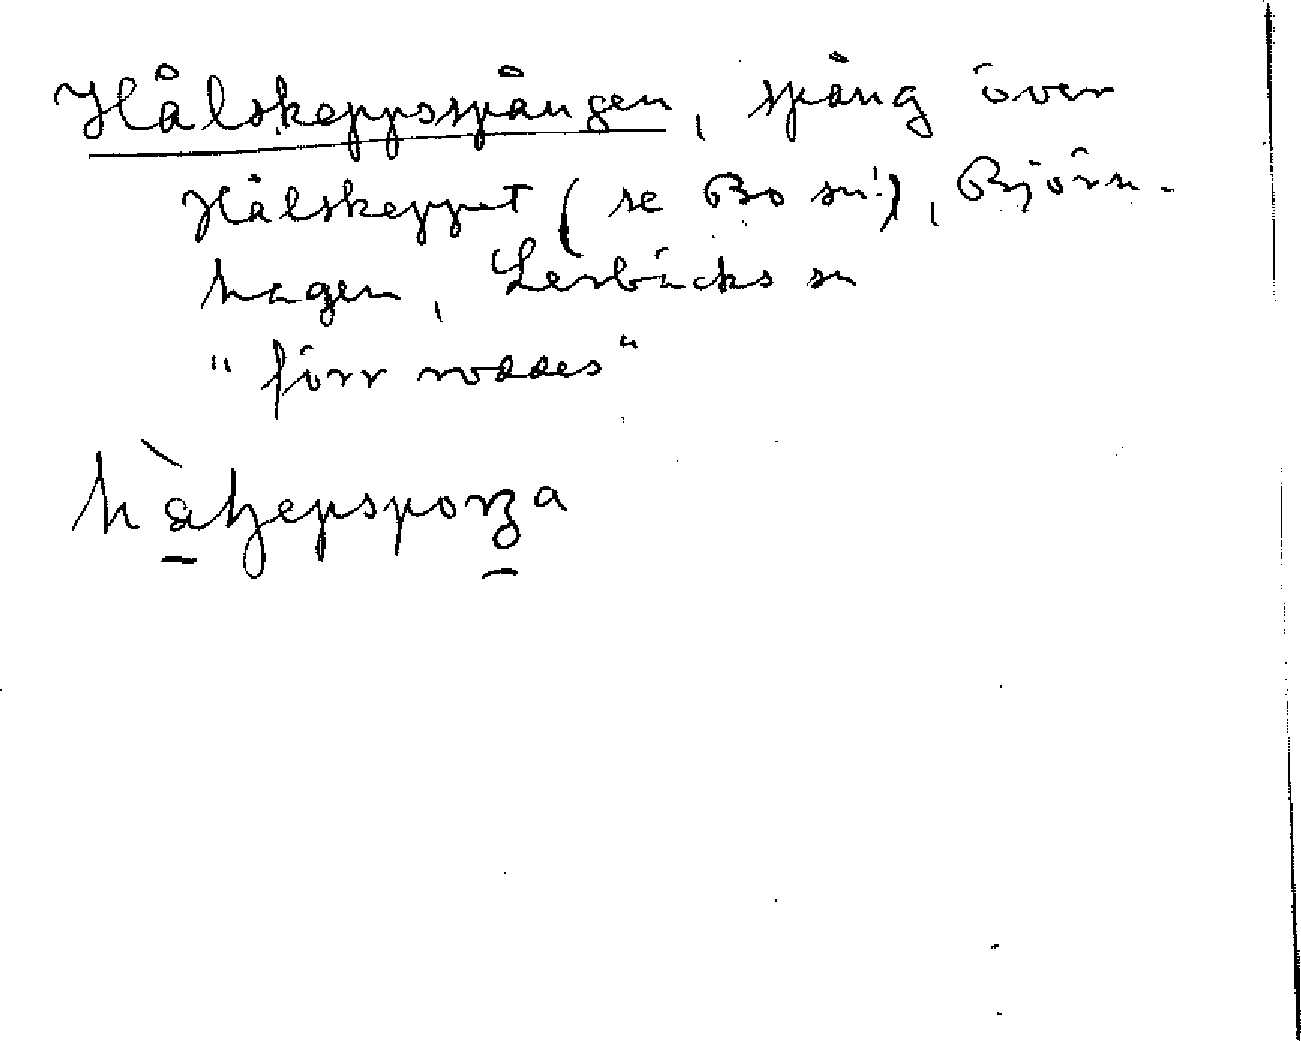 Hålskeppsspången, spång över
Hålskeppet (se Bo sn!), Björn-
hagen, Lerbäcks sn
"förr roddes"